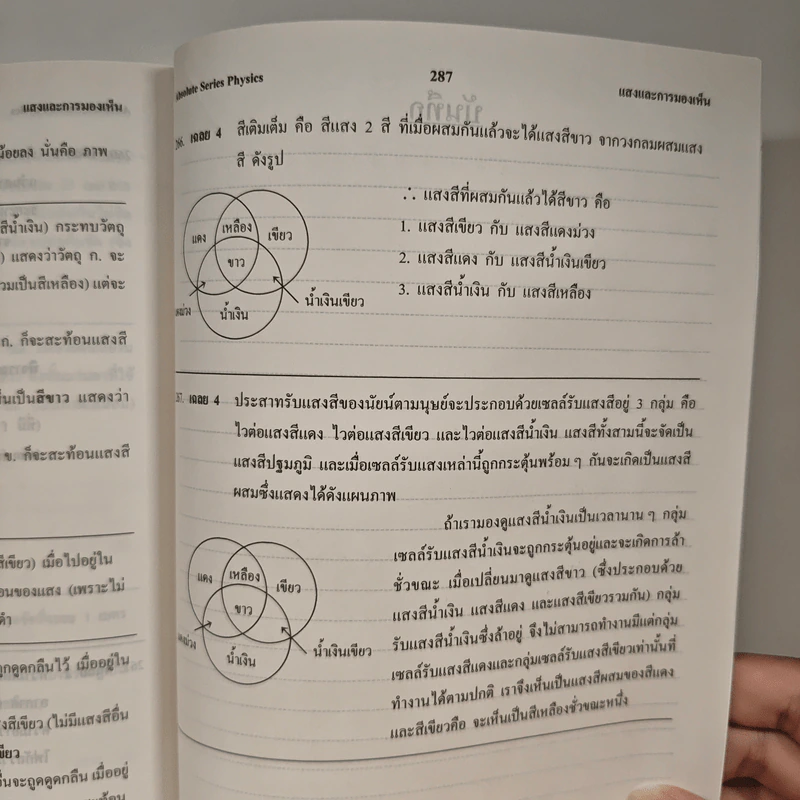 แสงและการมองเห็น
น้อยลง นั่นคือ ภาพ
สีน้ำเงิน) กระทบวัตถุ
) แสดงว่าวัตถุ ก. จะ
รวมเป็นสีเหลือง) แต่จะ
ก. ก็จะสะท้อนแสงสี
เห็นเป็นสีขาว แสดงว่า
ข. ก็จะสะท้อนแสงสี
สีเขียว) เมื่อไปอยู่ใน
ของแสง (เพราะไม่
ดำ
ถูกดูดกลืนไว้ เมื่ออยู่ใน
สีเขียว (ไม่มีแสงสีอื่น
เขียว
จะถูดดูดกลืน เมื่ออยู่
Absolute Series Physics
287
แสงและการมองเห็น
บันทึก
266. เฉลย 4 สีเติมเต็ม คือ สีแสง 2 สี ที่เมื่อผสมกันแล้วจะได้แสงสีขาว จากวงกลมผสมแสง
สี ดังรูป
แดง
เหลือง
เขียว
ขาว
ม่วง
น้ำเงิน
น้ำเงินเขียว
∴ แสงสีที่ผสมกันแล้วได้สีขาว คือ
1. แสงสีเขียว กับ แสงสีแดงม่วง
2. แสงสีแดง กับ แสงสีน้ำเงินเขียว
3. แสงสีน้ำเงิน กับ แสงสีเหลือง
เฉลย 4 ประสาทรับแสงสีของนัยน์ตามนุษย์จะประกอบด้วยเซลล์รับแสงสีอยู่ 3 กลุ่ม คือ
ไวต่อแสงสีแดง ไวต่อแสงสีเขียว และไวต่อแสงสีน้ำเงิน แสงสีทั้งสามนี้จะจัดเป็น
แสงสีปฐมภูมิ และเมื่อเซลล์รับแสงเหล่านี้ถูกกระตุ้นพร้อม ๆ กันจะเกิดเป็นแสงสี
ผสมซึ่งแสดงได้ดังแผนภาพ
แดง
เหลือง
เขียว
ขาว
ม่วง
น้ำเงิน
น้ำเงินเขียว
ถ้าเรามองดูแสงสีน้ำเงินเป็นเวลานาน ๆ กลุ่ม
เซลล์รับแสงสีน้ำเงินจะถูกกระตุ้นอยู่และจะเกิดการล้า
ชั่วขณะ เมื่อเปลี่ยนมาดูแสงสีขาว (ซึ่งประกอบด้วย
แสงสีน้ำเงิน แสงสีแดง และแสงสีเขียวรวมกัน) กลุ่ม
รับแสงสีน้ำเงินซึ่งล้าอยู่ จึงไม่สามารถทำงานมีแต่กลุ่ม
เซลล์รับแสงสีแดงและกลุ่มเซลล์รับแสงสีเขียวเท่านั้นที่
ทำงานได้ตามปกติ เราจึงเห็นเป็นแสงสีผสมของสีแดง
และสีเขียวคือ จะเห็นเป็นสีเหลืองชั่วขณะหนึ่ง